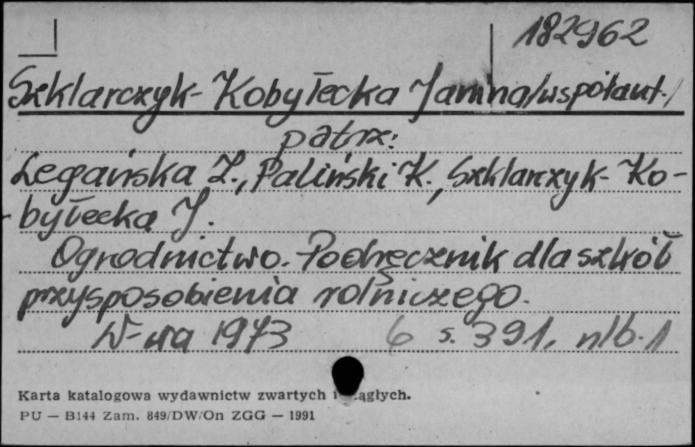 182962
Szklarczyk-Kobyłecka Janina/współaut./
patrz:
Legańska Z., Paliński K., Szklarczyk-Ko-
-byłecka J.
Ogrodnictwo. Podręcznik dla szkół
przysposobienia rolniczego.
W-wa 1973 6 s. 391, nlb. 1
Karta katalogowa wydawnictw zwartych i ciągłych.
PU — B144 Zam. 849/DW/On ZGG — 1991